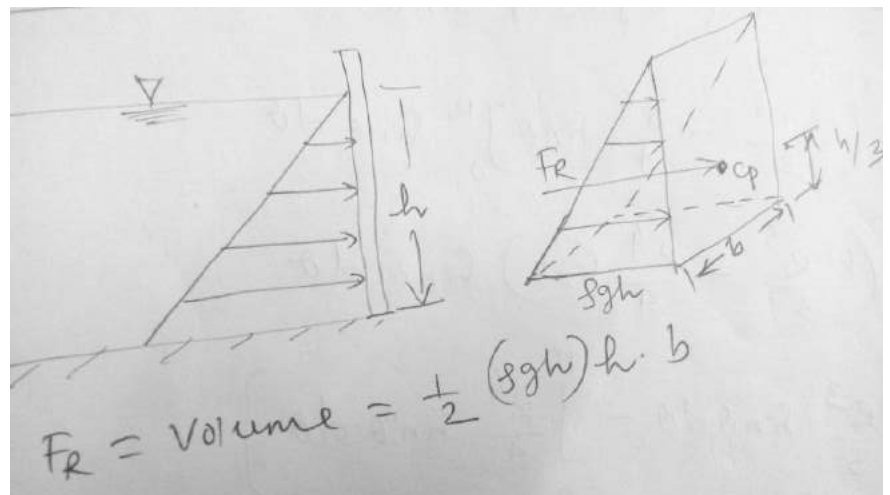 h
F_R
cp
h/3
b
ρgh
F_R = Volume = 1/2 (ρgh) h · b